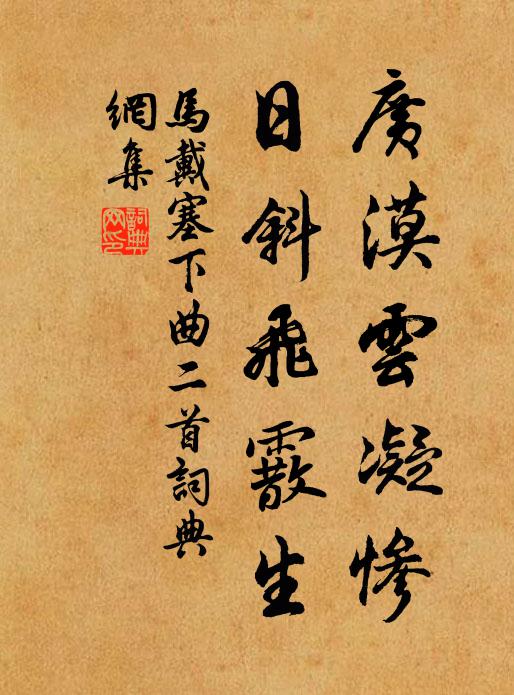 廣漠雲凝慘
日斜飛霰生
馬戴塞下曲二首詞典
網集
詞典
网印